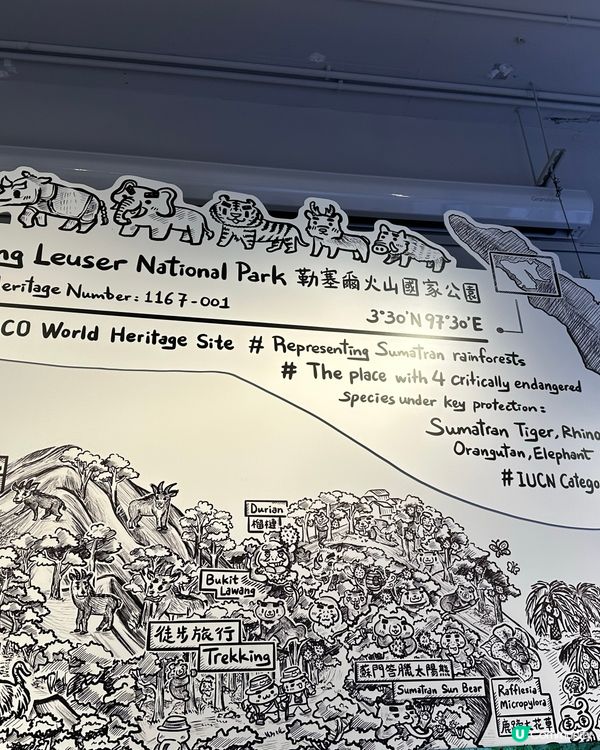 ng Leuser National Park 勒塞爾火山國家公園
eritage Number: 1167-001
3°30'N 97°30'E
CO World Heritage Site # Representing Sumatran rainforests
# The place with 4 critically endangered
species under key protection:
Sumatran Tiger, Rhino
Orangutan, Elephant
# IUCN Catego
Durian
榴槤
Bukit
Lawang
徒步旅行
Trekking
蘇門答臘太陽熊
Sumatran Sun Bear
Rafflesia
Micropylora